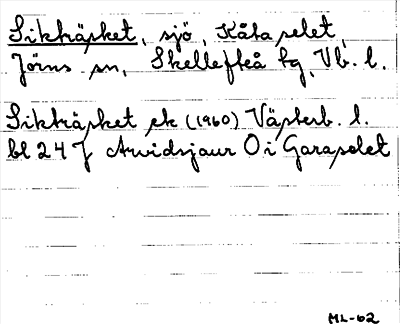 Sikträsket, sjö, Kåtaselet,
Jörns sn, Skellefteå tg, Vb. l.
Sikträsket ek (1960) Västerb. l.
bl 24 J Arvidsjaur Ö i Garaselet
ML-62